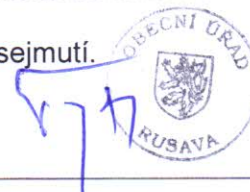 sejmutí.
OBECNÍ ÚŘAD
RUSAVA